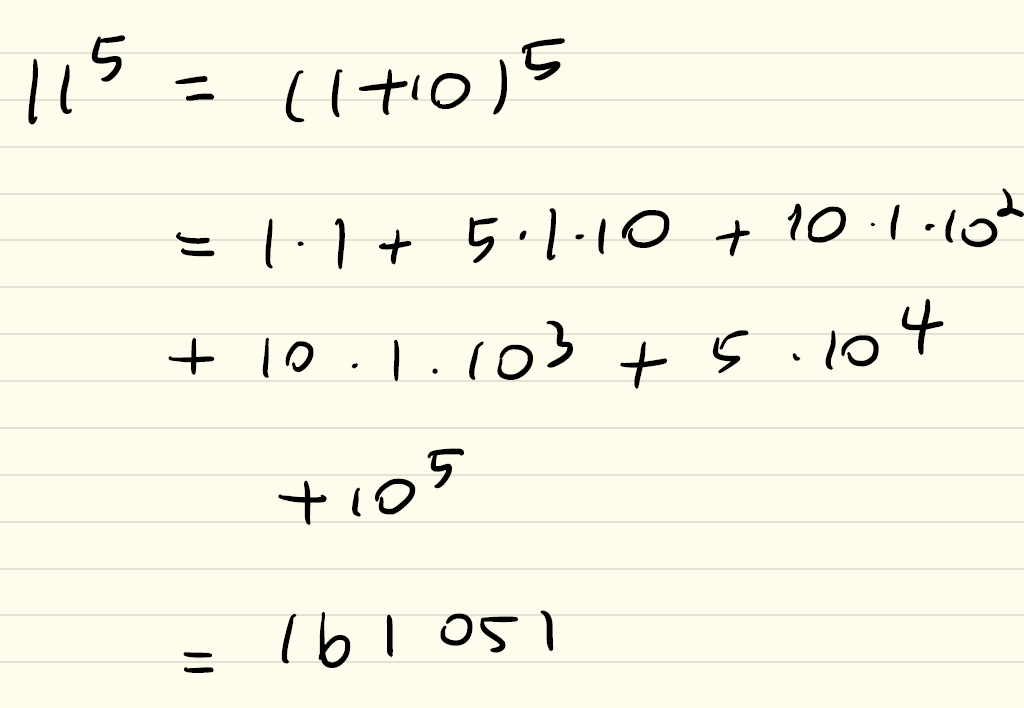 11⁵ = (1+10)⁵
= 1·1 + 5·1·10 + 10·1·10²
+ 10·1·10³ + 5·10⁴
+10⁵
= 161 051